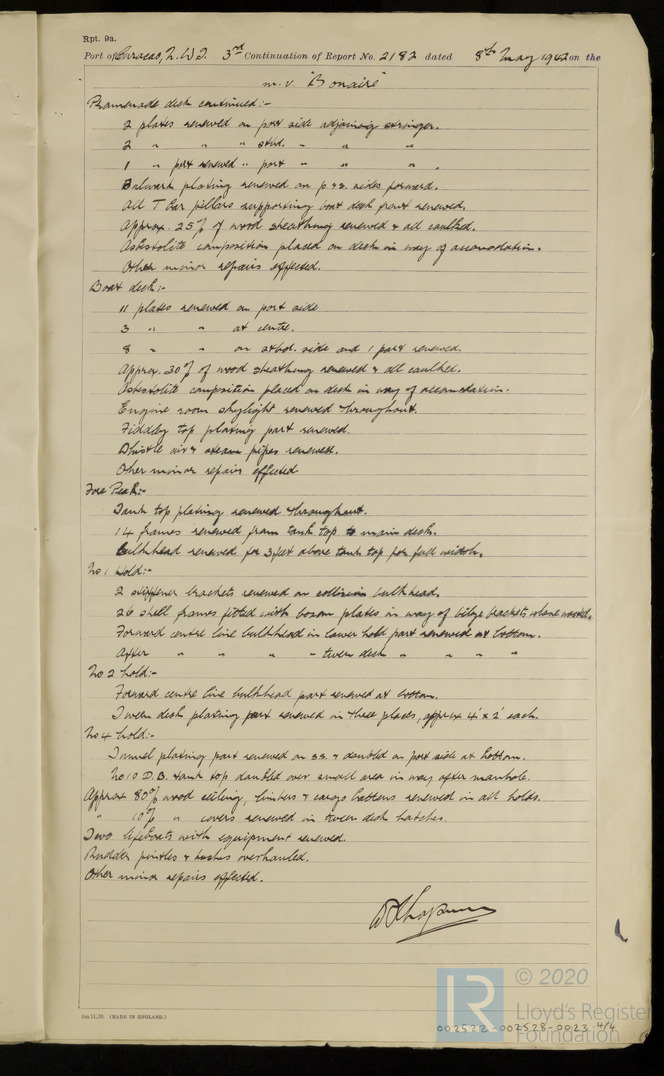 Rpt. 9a.
Port of Curacao, N.W.I. 3rd Continuation of Report No. 2182 dated 8th May 1942 on the
m.v. "Bonaire"
Promenade deck continued:-
2 plates renewed on port side adjoining stringer.
2 " " " stbd. " " "
1 " part renewed " port " " " .
Bulwark plating renewed on p & s. sides forward.
All T bar pillars supporting boat deck part renewed.
Approx. 25% of wood sheathing renewed & all caulked.
Asbestolite composition placed on deck in way of accomodation.
Other minor repairs effected.
Boat deck:-
11 plates renewed on port side
3 " " at centre.
8 " " on stbd. side and 1 part renewed.
Approx. 30% of wood sheathing renewed & all caulked.
Asbestolite composition placed on deck in way of accomodation.
Engine room skylight renewed throughout.
Fiddley top plating part renewed.
Whistle air & steam pipes renewed.
Other minor repairs effected
Fore Peak:-
Tank top plating renewed throughout.
14 frames renewed from tank top to main deck.
Bulkhead renewed for 3 feet above tank top for full width.
No 1 Hold:-
2 stiffener brackets renewed on collision bulkhead.
26 shell frames fitted with bosom plates in way of bilge brackets where wasted.
Forward centre line bulkhead in lower hold part renewed at bottom.
After " " " " tween deck " " " "
No 2 hold:-
Forward centre line bulkhead part renewed at bottom.
Tween deck plating part renewed in three places, approx 4' x 2' each.
No 4 hold:-
Tunnel plating part renewed on ss. & doubled on port side at bottom.
No 10 D.B. tank top doubled over small area in way after manhole.
Approx 80% wood ceiling, limbers & cargo battens renewed in all holds.
" 10% " covers renewed in tween deck hatches.
Two lifeboats with equipment renewed.
Rudder pintles & bushes overhauled.
Other minor repairs effected.
(MADE IN ENGLAND.)
© 2020
LR
Lloyd's Register
Foundation
002522-002528-0023 4/4